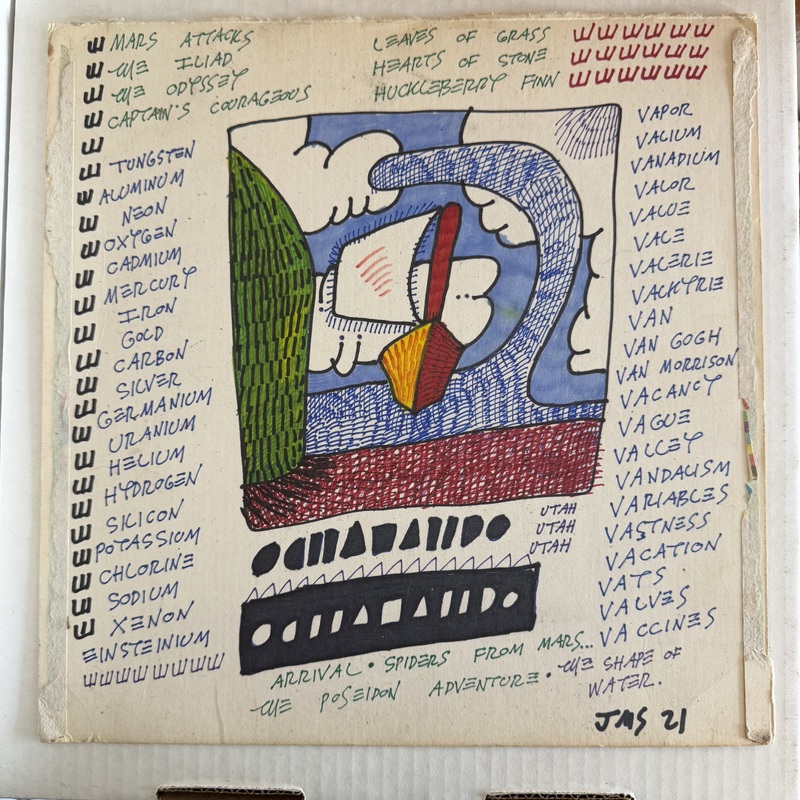 MARS ATTACKS
THE ILIAD
THE ODYSSEY
CAPTAIN'S COURAGEOUS
LEAVES OF GRASS
HEARTS OF STONE
HUCKLEBERRY FINN
TUNGSTEN
ALUMINUM
NEON
OXYGEN
CADMIUM
MERCURY
IRON
GOLD
CARBON
SILVER
GERMANIUM
URANIUM
HELIUM
HYDROGEN
SILICON
POTASSIUM
CHLORINE
SODIUM
XENON
EINSTEINIUM
VAPOR
VALIUM
VANADIUM
VALOR
VALUE
VALE
VALERIE
VALKYRIE
VAN
VAN GOGH
VAN MORRISON
VACANCY
VAGUE
VALLEY
VANDALISM
VARIABLES
VASTNESS
VACATION
VATS
VALVES
VACCINES
UTAH
UTAH
UTAH
ARRIVAL • SPIDERS FROM MARS...
THE POSEIDON ADVENTURE • THE SHAPE OF
WATER.
JMS 21